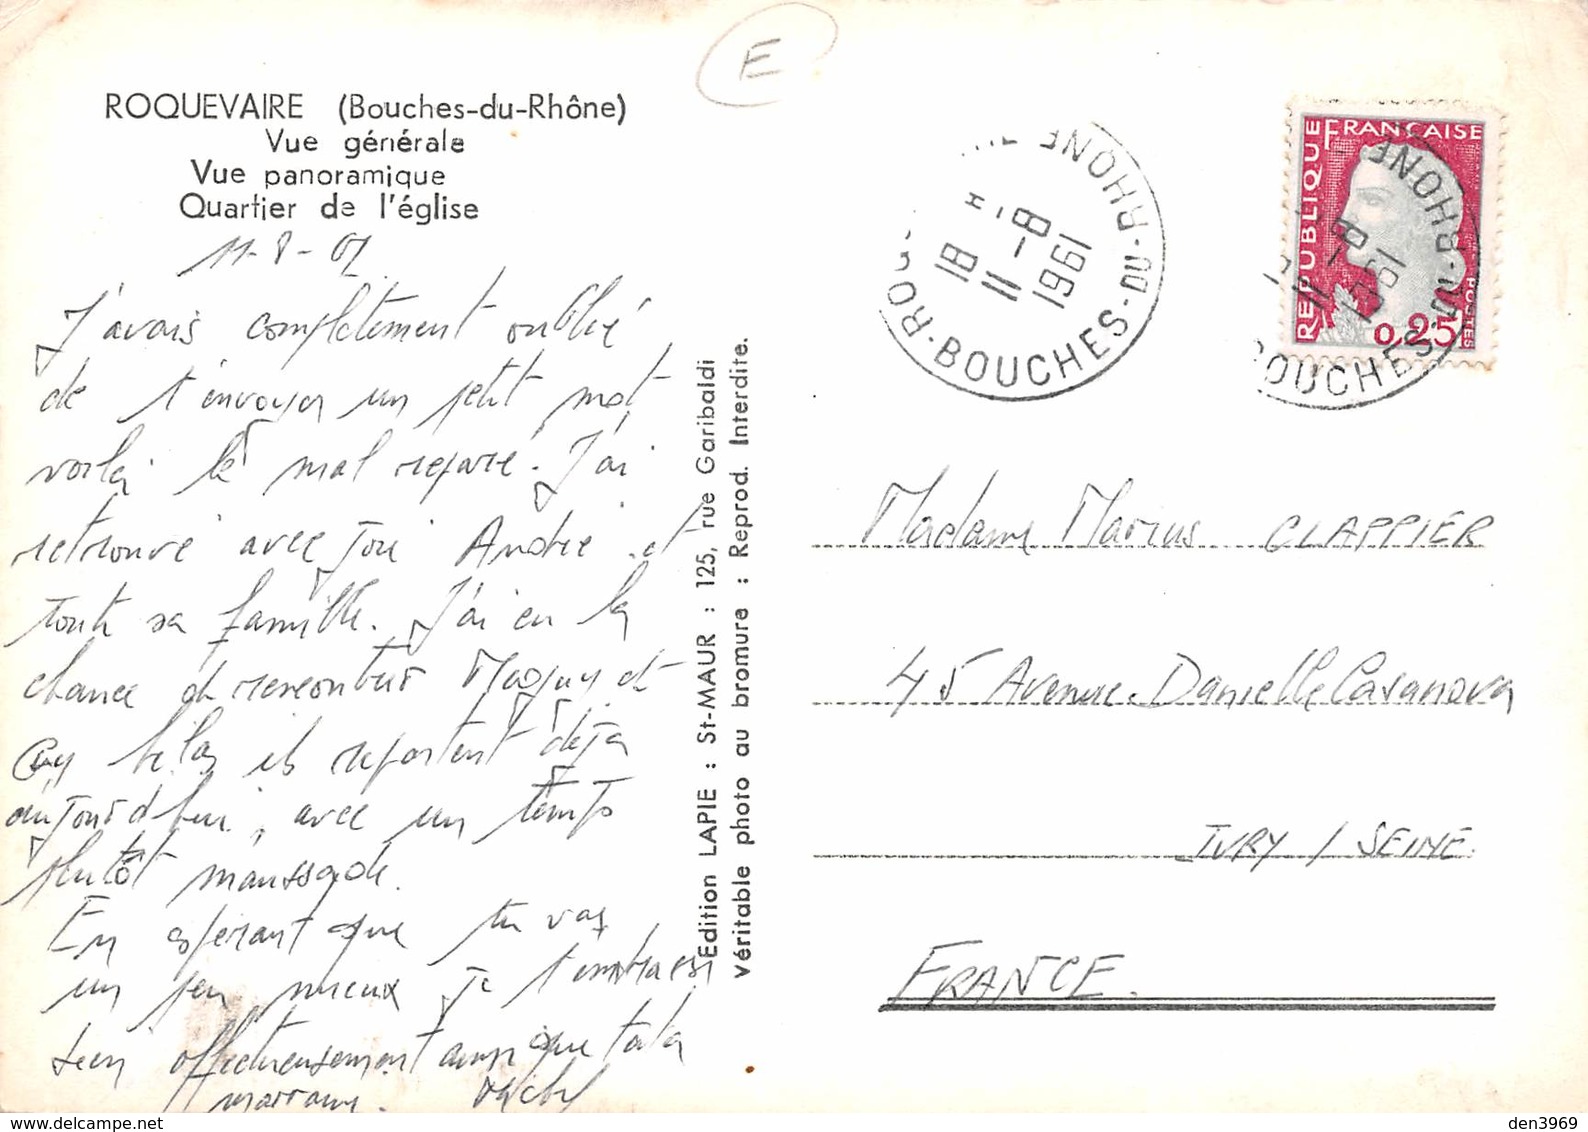 E
ROQUEVAIRE (Bouches-du-Rhône)
Vue générale
Vue panoramique
Quartier de l'église
11-8-61
J'avais complètement oublié
de t'envoyer un petit mot
voilà le mal réparé. J'ai
retrouvé avec joie André et
toute sa famille. J'ai eu la
chance de rencontrer Maguy et
Guy hélas ils repartent déjà
aujourd'hui, avec un temps
plutôt maussade.
En espérant que tu vas
un peu mieux je t'embrasse
bien affectueusement ainsi que tata
marraine.
Edition LAPIE : St-MAUR : 125, rue Garibaldi
Véritable photo au bromure : Reprod. Interdite.
ROQ - BOUCHES-DU-RHÔNE
18 H
11-8
1961
RÉPUBLIQUE FRANÇAISE
POSTES
0,25
11-8
1961
BOUCHES-DU-RHÔNE
Madame Marius CLAPPIER
45 Avenue Danielle Casanova
IVRY / SEINE.
FRANCE.
den3969